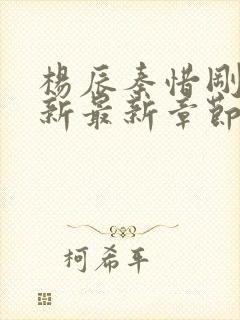 楊辰秦惜剛
新最新章節
柯希平